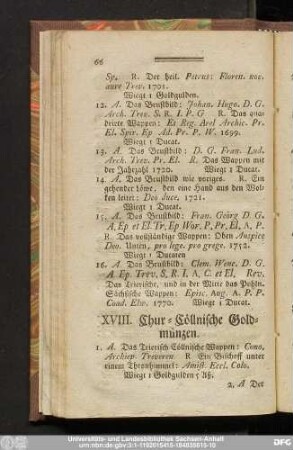 66
Sp. R. Der heil. Petrus: Floren. nov.
aure Trev. 1701.
Wiegt 1 Goldgulden.
12. A. Das Brustbild: Johan. Hugo. D. G.
Arch. Trev. S. R. I. P. G R. Das qua=
drirte Wappen: Et Reg. Arel Archic. Pr.
El. Spir. Ep Ad. Pr. P. W. 1699.
Wiegt 1 Ducat.
13. A. Das Brustbild: D. G. Fran. Lud.
Arch. Trev. Pr. El. R. Das Wappen mit
der Jahrzahl 1720. Wiegt 1 Ducat.
14. A. Das Brustbild wie voriges. R. Ein
gehender Löwe, den eine Hand aus den Wol=
ken leitet: Deo duce. 1721.
Wiegt 1 Ducat.
15. A. Das Brustbild: Fran. Georg D. G.
A, Ep et El. Tr, Ep Wor, P, Pr, El, A, P.
R. Das vollständige Wappen: Oben Auspice
Deo. Unten, pro lege, pro grege. 1752.
Wiegt 1 Ducaten
16. A. Das Brustbild: Clem. Wenc. D. G.
A. Ep. Trev, S, R. I. A, C. et El, Rev.
Das Trierische, und in der Mitte das Pohln.
Sächsische Wappen: Episc. Aug. A. P. P.
Coad. Elv. 1770. Wiegt 1 Ducat.
XVIII. Chur=Cöllnische Gold=
münzen.
1. A. Das Trierisch Cöllnische Wappen: Cono,
Archiep. Treveren. R Ein Bischoff unter
einem Thronhimmel: Amist. Eccl. Colo.
Wiegt 1 Goldgulden
2. A Der
Universitäts- und Landesbibliothek Sachsen-Anhalt
urn:nbn:de:gbv:3:1-1192015415-184835815-10
DFG